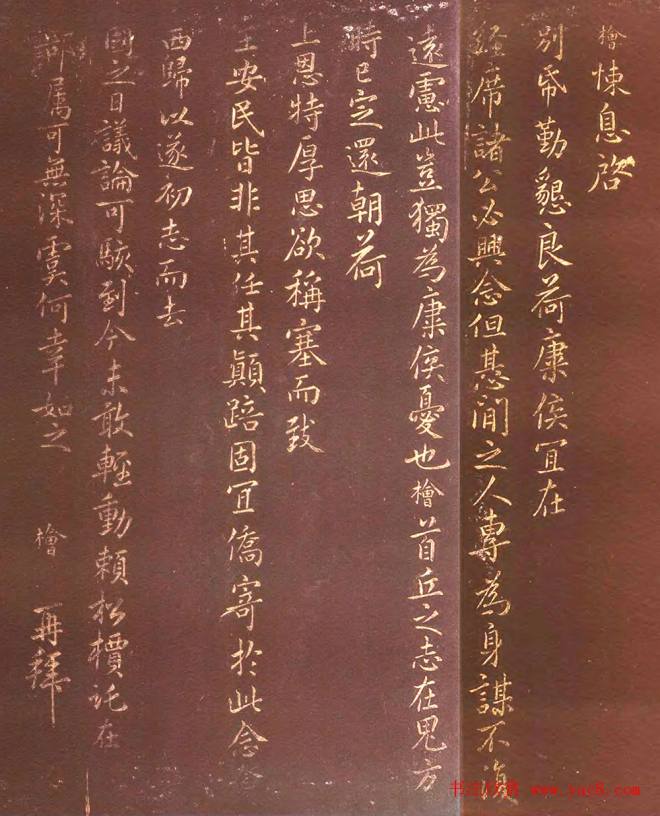 檜悚息啓
別帋勤懇良荷康侯宜在
經席諸公必興念但悬閒之人專為身謀不復
遠慮此豈獨為康侯憂也檜首丘之志在兕方
時已定還朝荷
上恩特厚思欲稱塞而致
主安民皆非其任其顛踣固宜僑寄於此念念
西歸以遂初志而去
國之日議論可駭到今未敢輕動賴松檟託在
鄰属可無深虞何幸如之
檜再拜
www.yac8.com